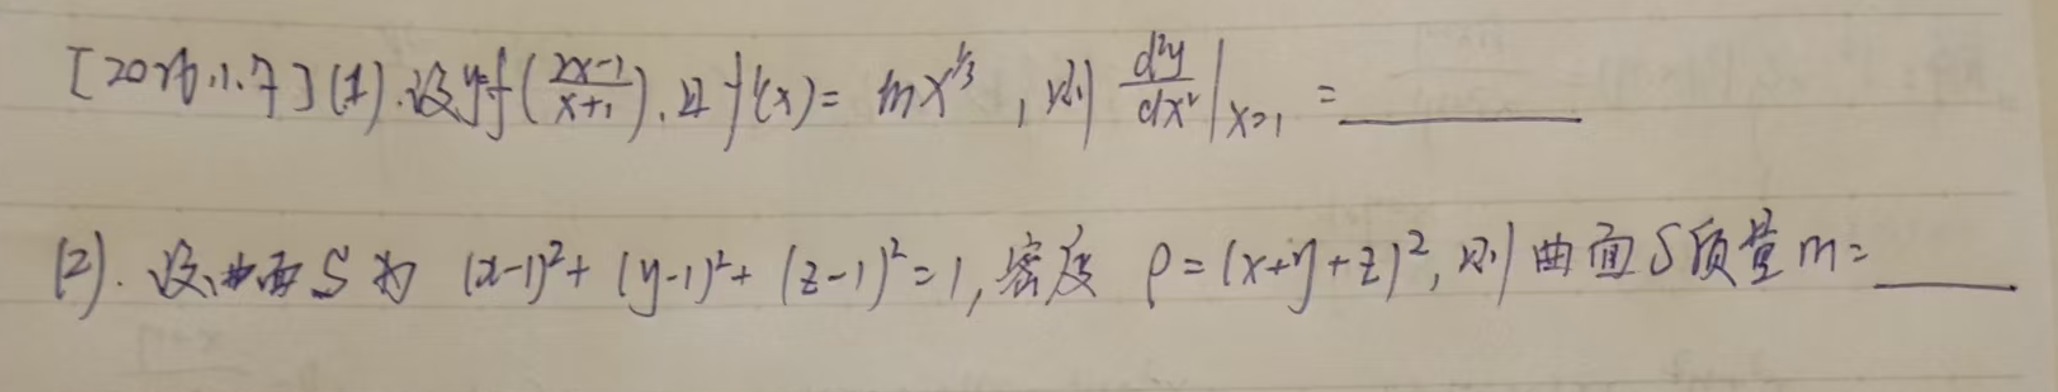 [2026.1.7](1).设y=f(\frac{2x-1}{x+1}).且f'(x)=lnx^{1/3},则\frac{d²y}{dx²}|_{x=1}=______
(2).设曲面S为(x-1)²+(y-1)²+(z-1)²=1,密度ρ=(x+y+z)²,则曲面S质量m=______